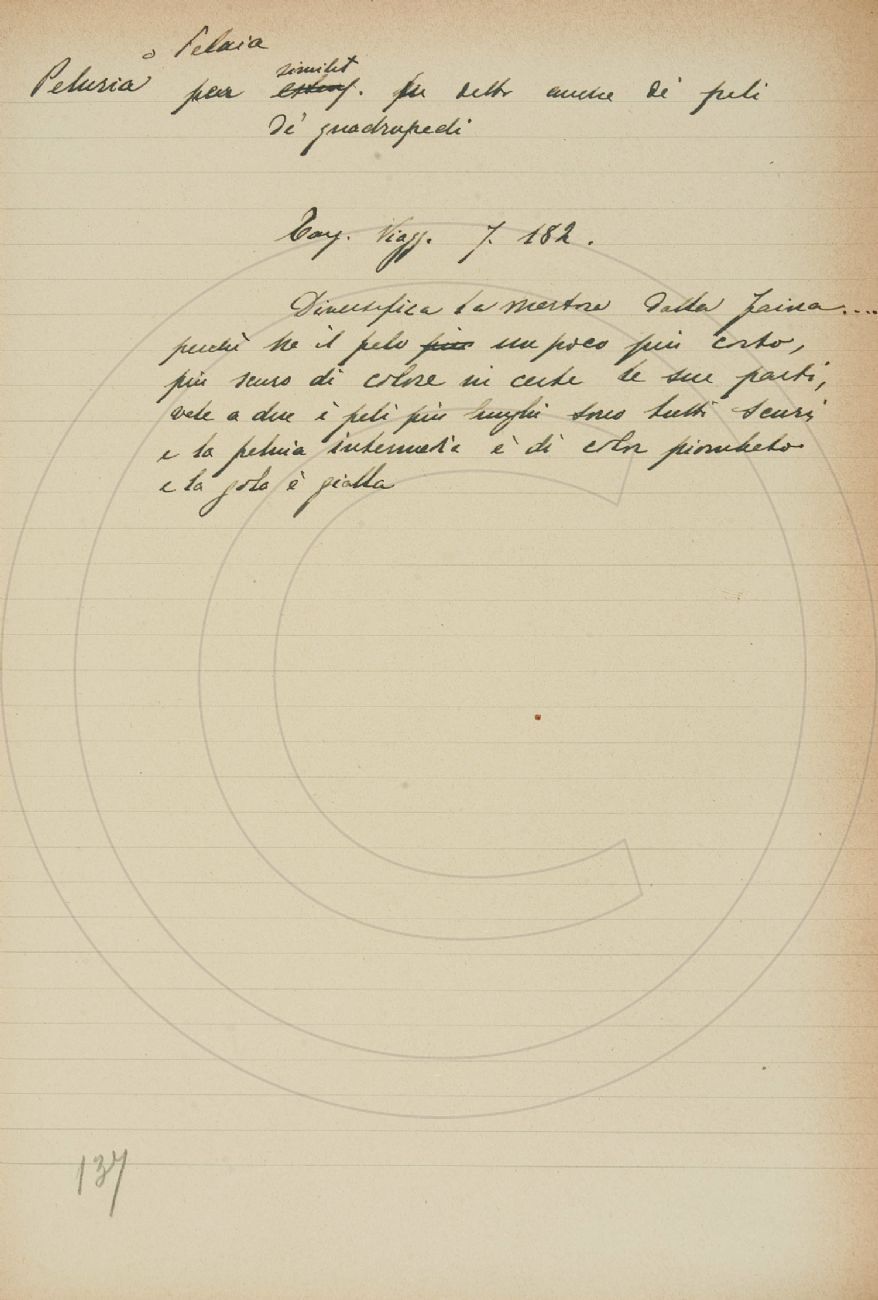 Peluria o Peluia
per estens. similit fu detto anche de' peli
de' quadrupedi
Targ. Viagg. 7. 182.
Diversifica la Martora dalla faina....
perchè ha il pelo più un poco più corto,
più scuro di colore in certe le sue parti,
vale a dire i peli più lunghi sono tutti scuri
e la peluia intermedia è di color piombato
e la gola è gialla
137